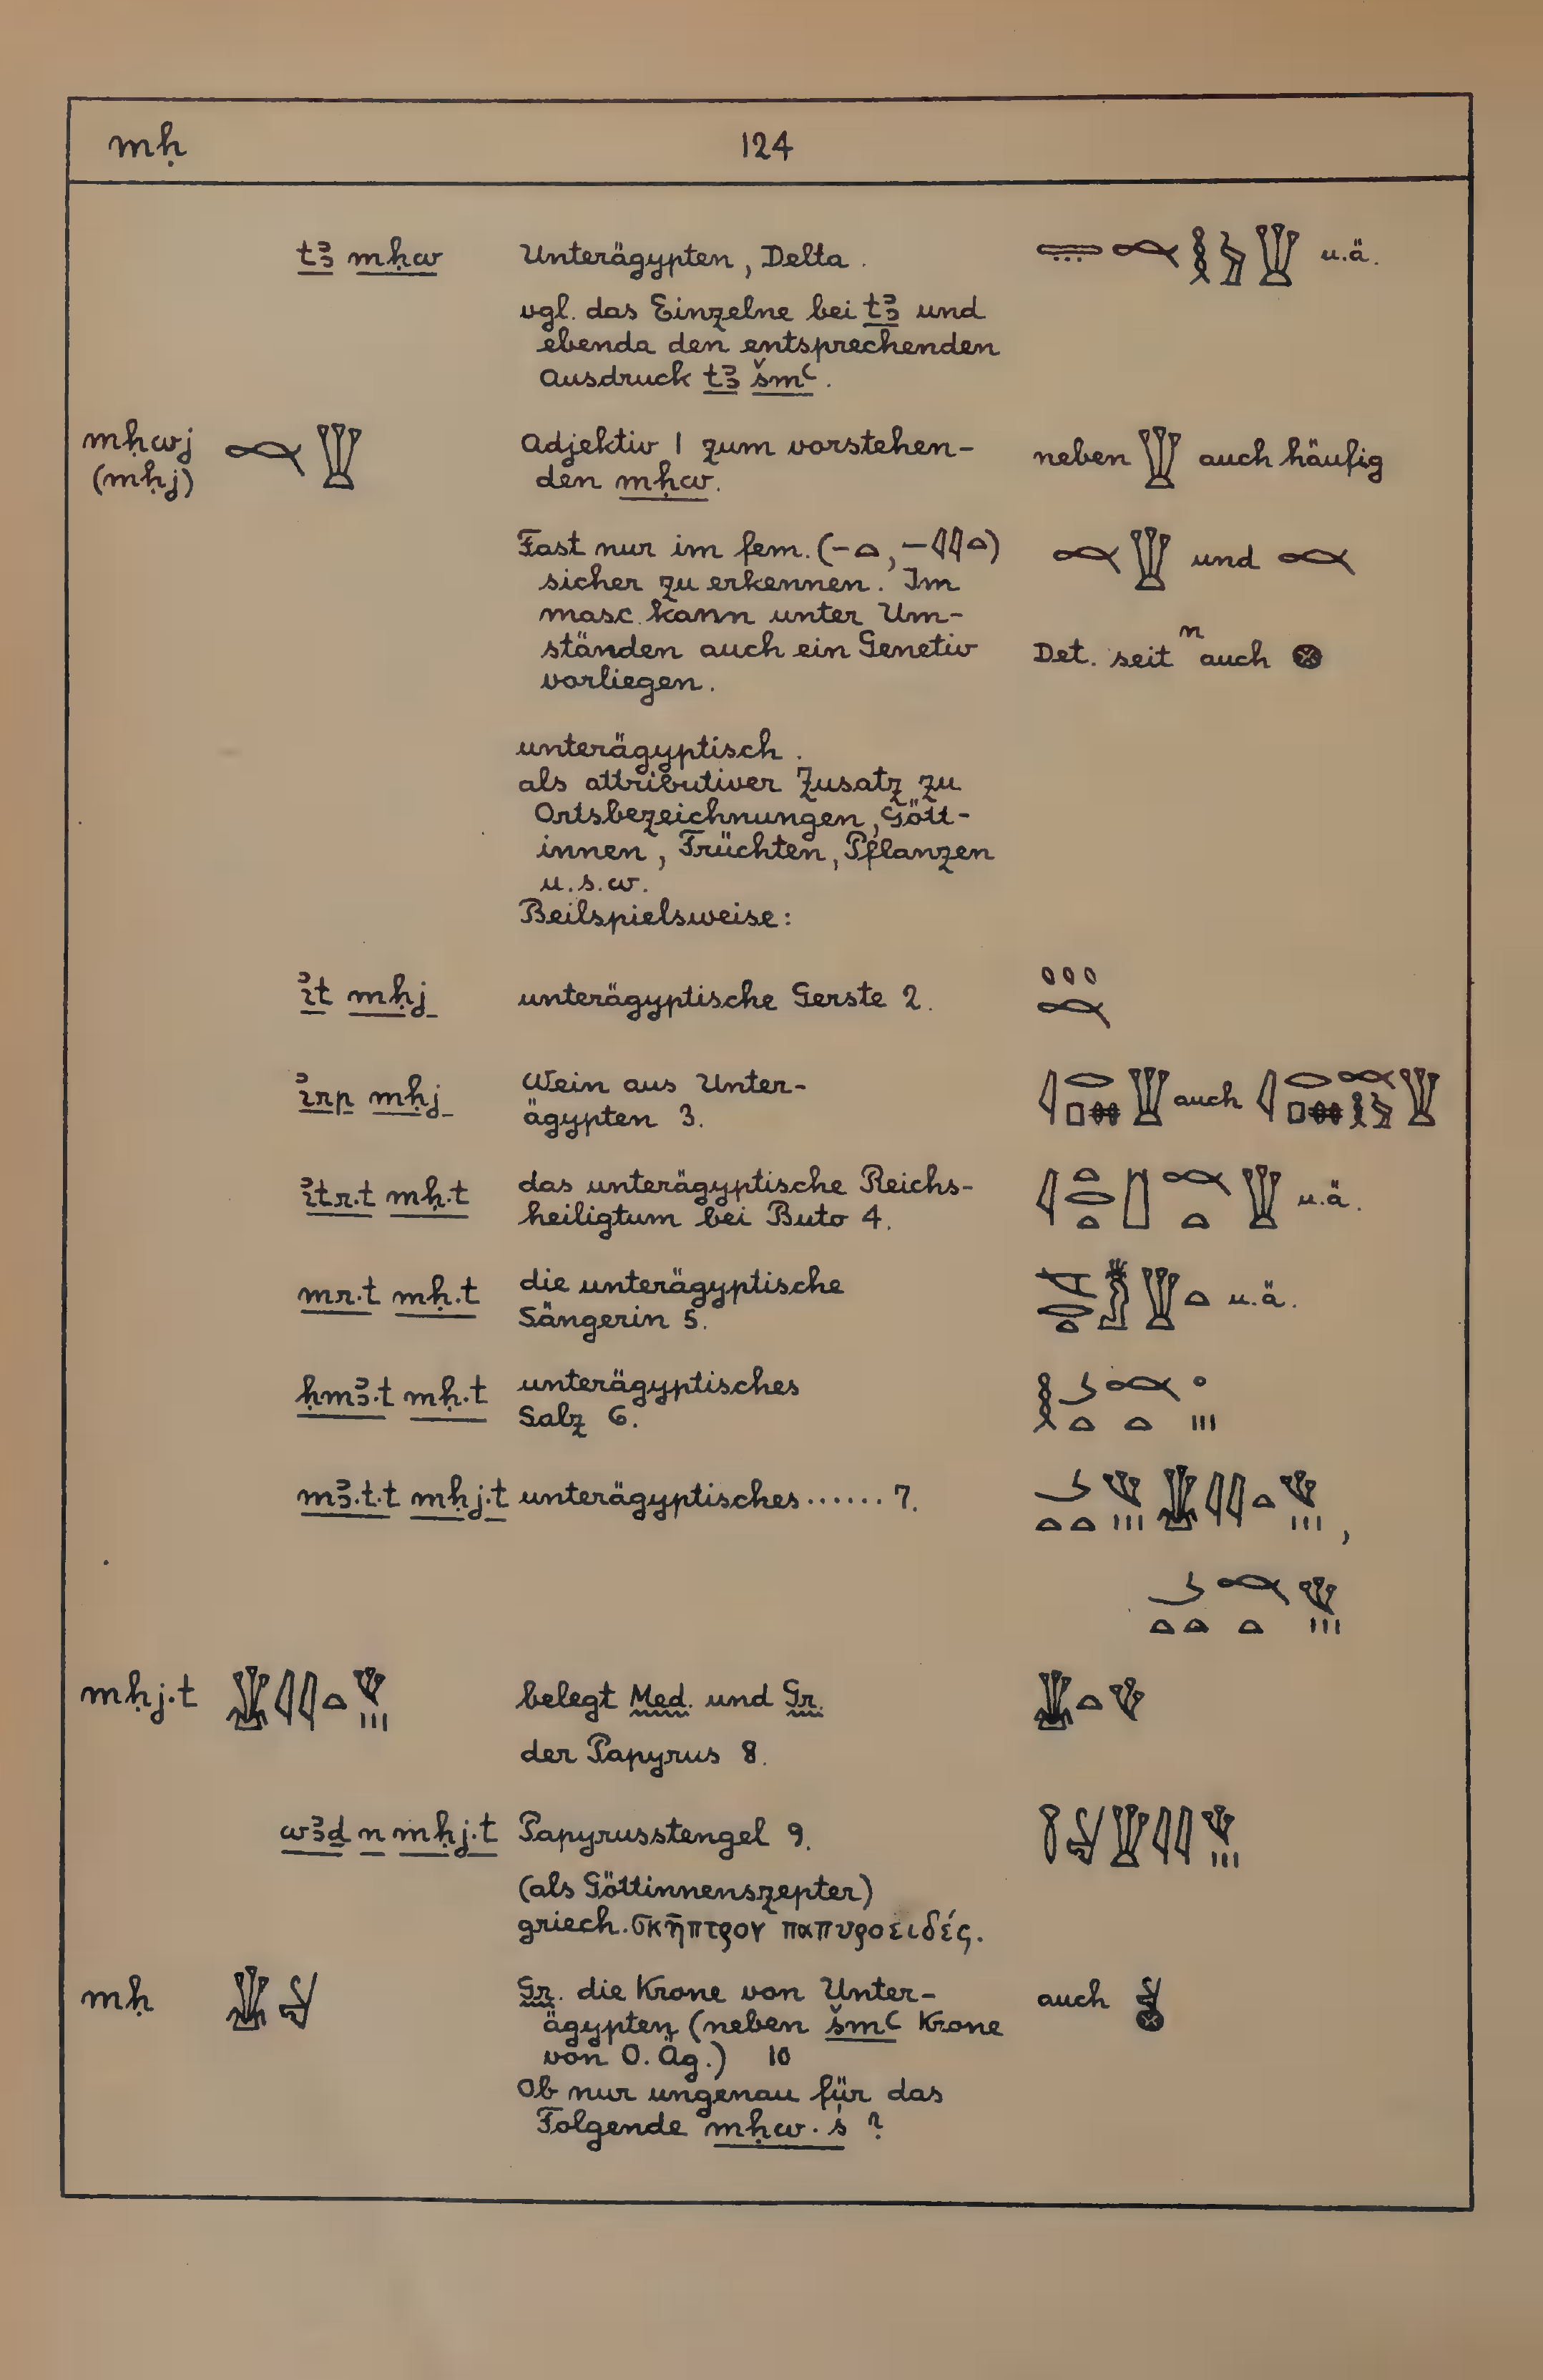 mḥ 124
tꜣ mḥw Unterägypten, Delta. u.ä.
vgl. das Einzelne bei tꜣ und
ebenda den entsprechenden
Ausdruck tꜣ šmꜥ.
mḥwj Adjektiv 1 zum vorstehen-
(mḥj) den mḥw. neben auch häufig
Fast nur im fem. (-, -)
sicher zu erkennen. Im und
masc. kann unter Um-
ständen auch ein Genetiv Det. seit n auch
vorliegen.
unterägyptisch.
als attributiver Zusatz zu
Ortsbezeichnungen, Gött-
innen, Früchten, Pflanzen
u.s.w.
Beilspielsweise:
ı͗t mḥj unterägyptische Gerste 2.
ı͗rp mḥj Wein aus Unter-
ägypten 3. auch
ı͗tr.t mḥ.t das unterägyptische Reichs-
heiligtum bei Buto 4. u.ä.
mr.t mḥ.t die unterägyptische
Sängerin 5. u.ä.
ḥmꜣ.t mḥ.t unterägyptisches
Salz 6.
mꜣ.t.t mḥj.t unterägyptisches ...... 7. ,
mḥj.t belegt Med. und Gr.
der Papyrus 8.
wꜣḏ n mḥj.t Papyrusstengel 9.
(als Göttinnenszepter)
griech. σκῆπτρον παπυροειδές.
mḥ Gr. die Krone von Unter- auch
ägypten (neben šmꜥ Krone
von O. Äg.) 10
Ob nur ungenau für das
Folgende mḥw.ś ?